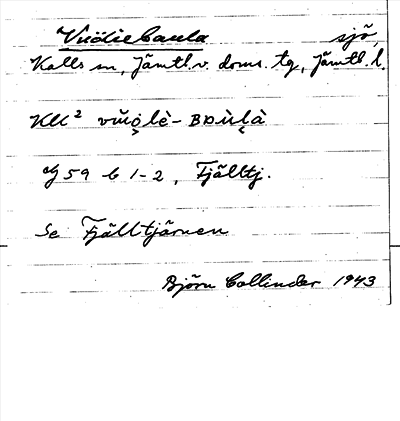 Vuöliebaula sjö,
Kalls sn, Jämtl.v. doms. tg, Jämtl. l.
KM² vŭo̭lè-ʙᴅùl̬à
Y 59 b 1-2, Fjälltj.
Se Fjälltjärnen
Björn Collinder 1943